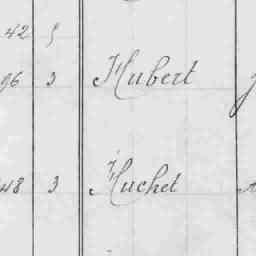 42 5
96 3 Hubert
48 3 Huchet